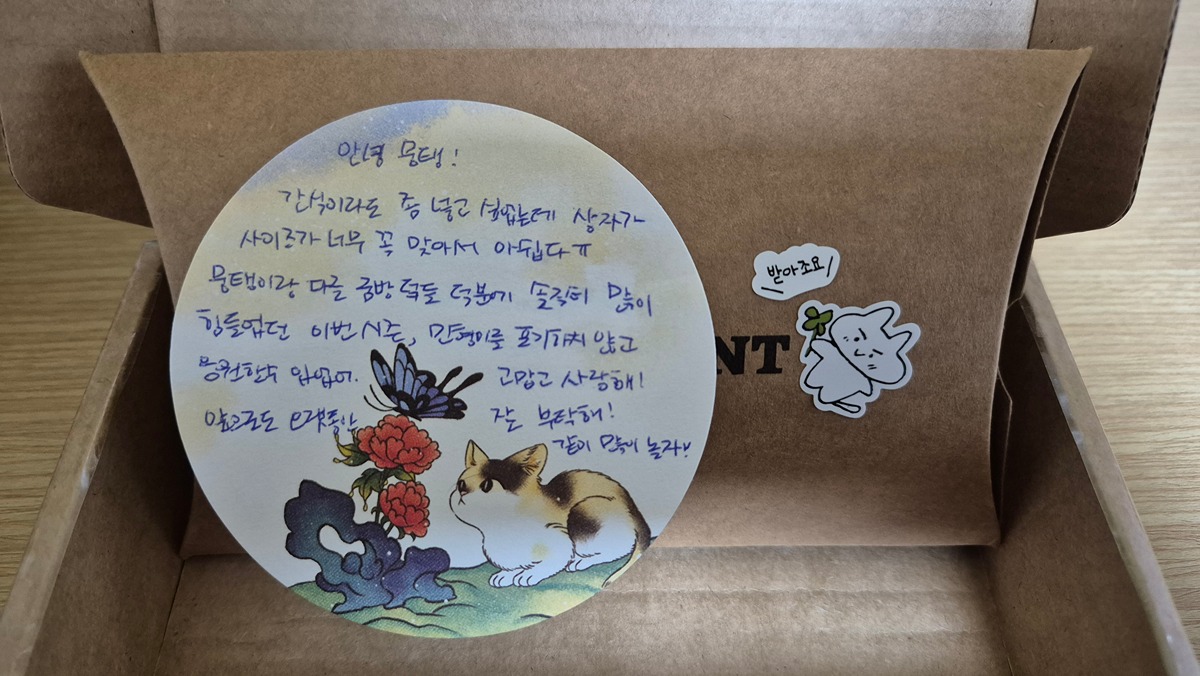 안녕 뭉탱!
간식이라도 좀 넣고 싶었는데 상자가
사이즈가 너무 꼭 맞아서 아쉽다ㅠ
뭉탱이랑 다들 금방 덕분에 솔직히 많이
힘들었던 이번 시즌, 만영이를 포기하지 않고
응원할수 있었어. 고맙고 사랑해!
앞으로도 오랫동안 잘 부탁해!
같이 많이 놀자♡
받아조요
NT